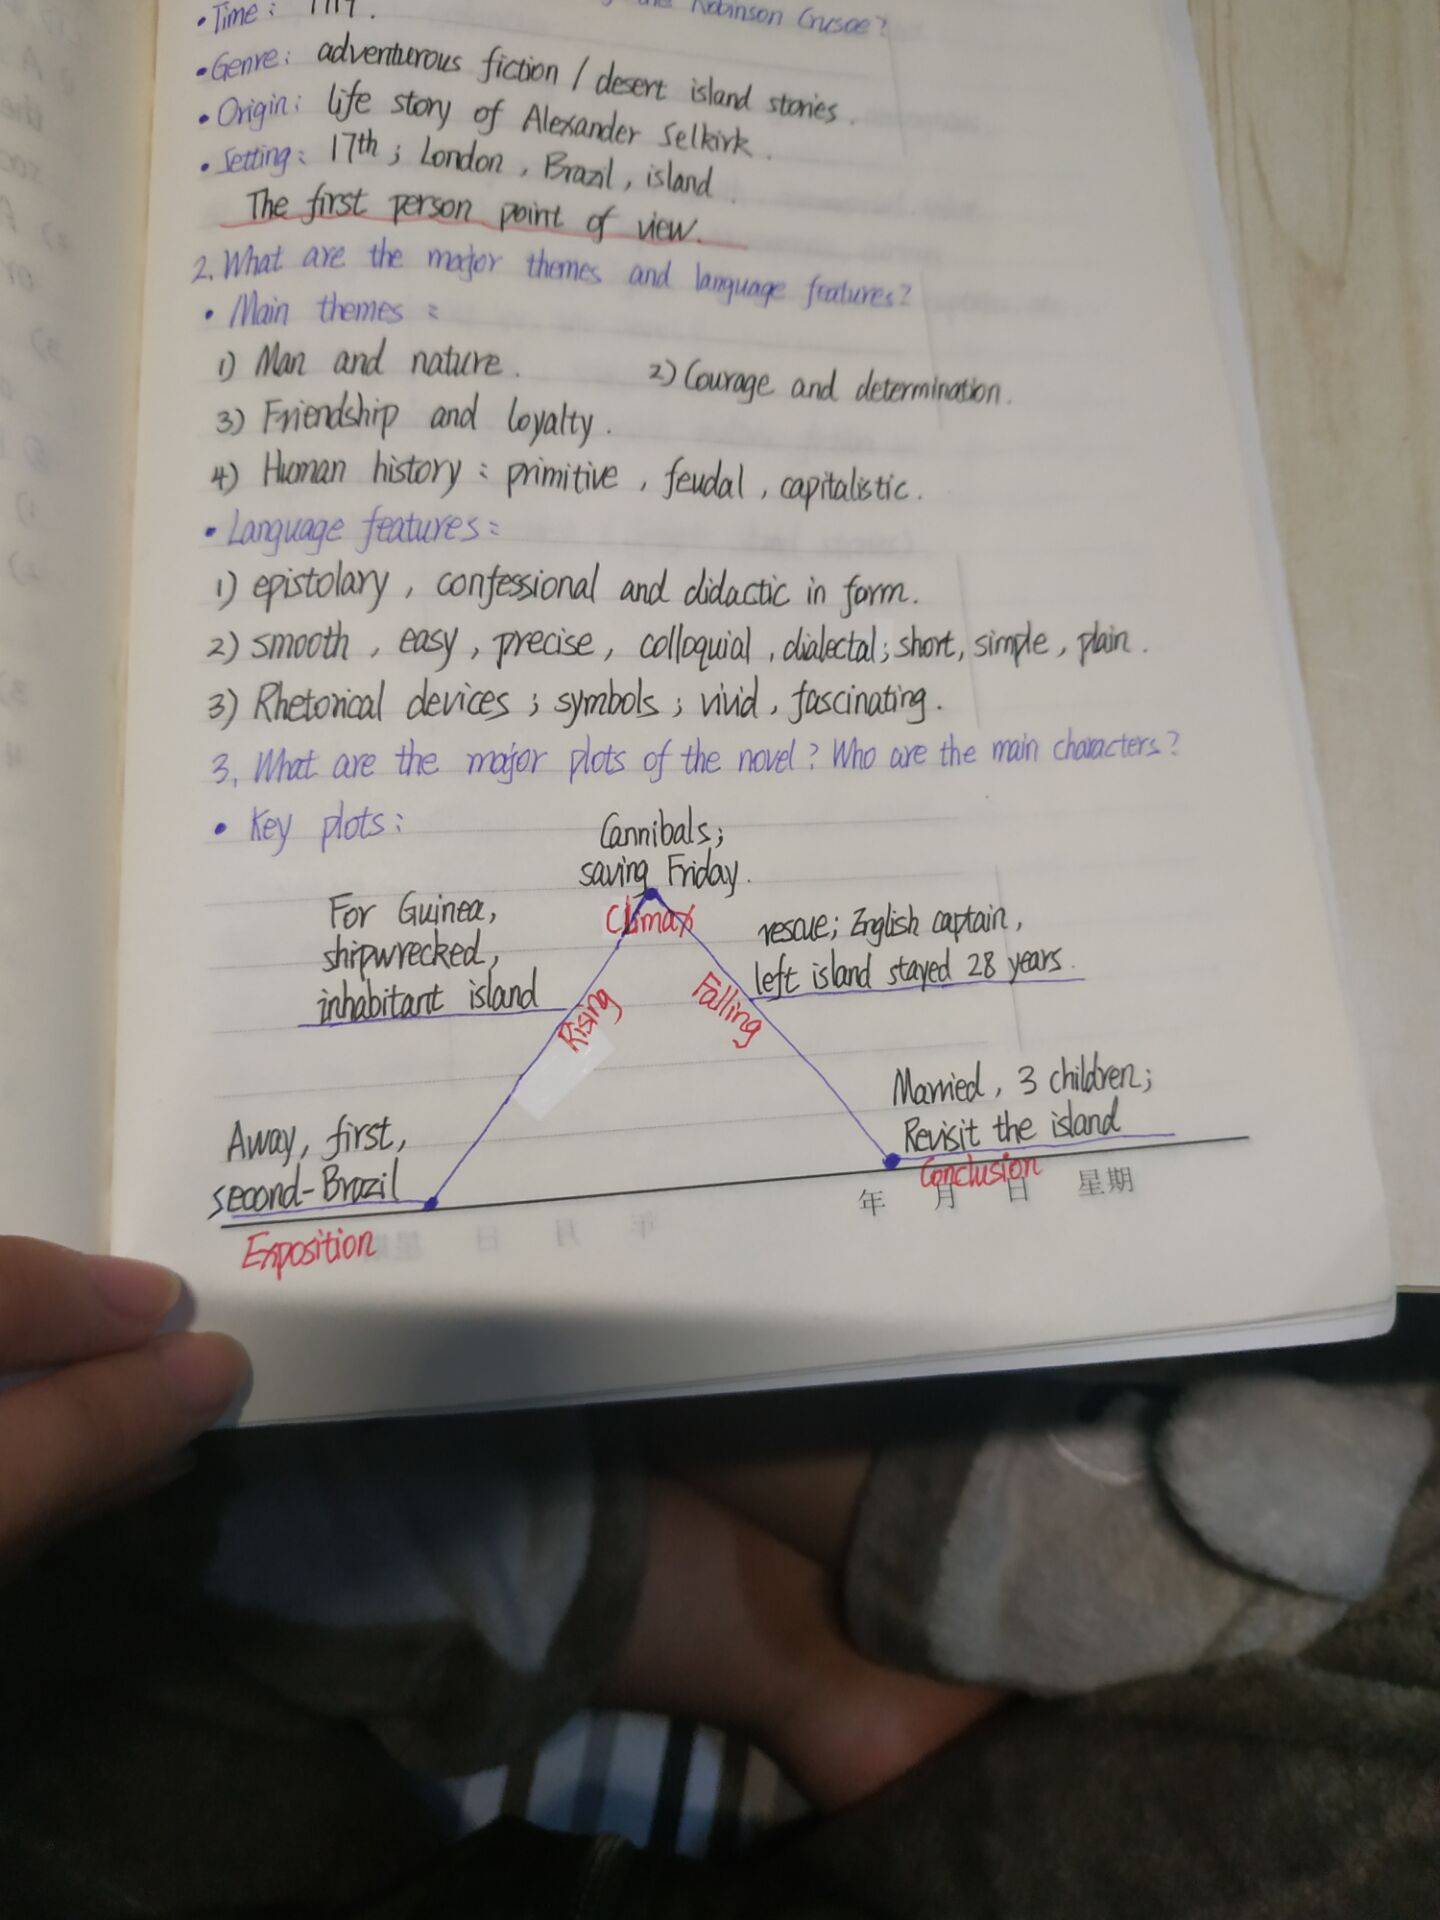 • Time: 1719.
Robinson Crusoe?
• Genre: adventurous fiction / desert island stories.
• Origin: life story of Alexander Selkirk.
• Setting: 17th; London, Brazil, island.
The first person point of view.
2. What are the major themes and language features?
• Main themes:
1) Man and nature. 2) Courage and determination.
3) Friendship and loyalty.
4) Human history: primitive, feudal, capitalistic.
• Language features:
1) epistolary, confessional and didactic in form.
2) smooth, easy, precise, colloquial, dialectal; short, simple, plain.
3) Rhetorical devices; symbols; vivid, fascinating.
3. What are the major plots of the novel? Who are the main characters?
• Key plots:
Cannibals;
saving Friday.
Climax
For Guinea,
shipwrecked,
inhabitant island
Rising
rescue; English captain,
left island stayed 28 years.
Falling
Away, first,
second-Brazil
Exposition
Married, 3 children;
Revisit the island
Conclusion
年 月 日 星期